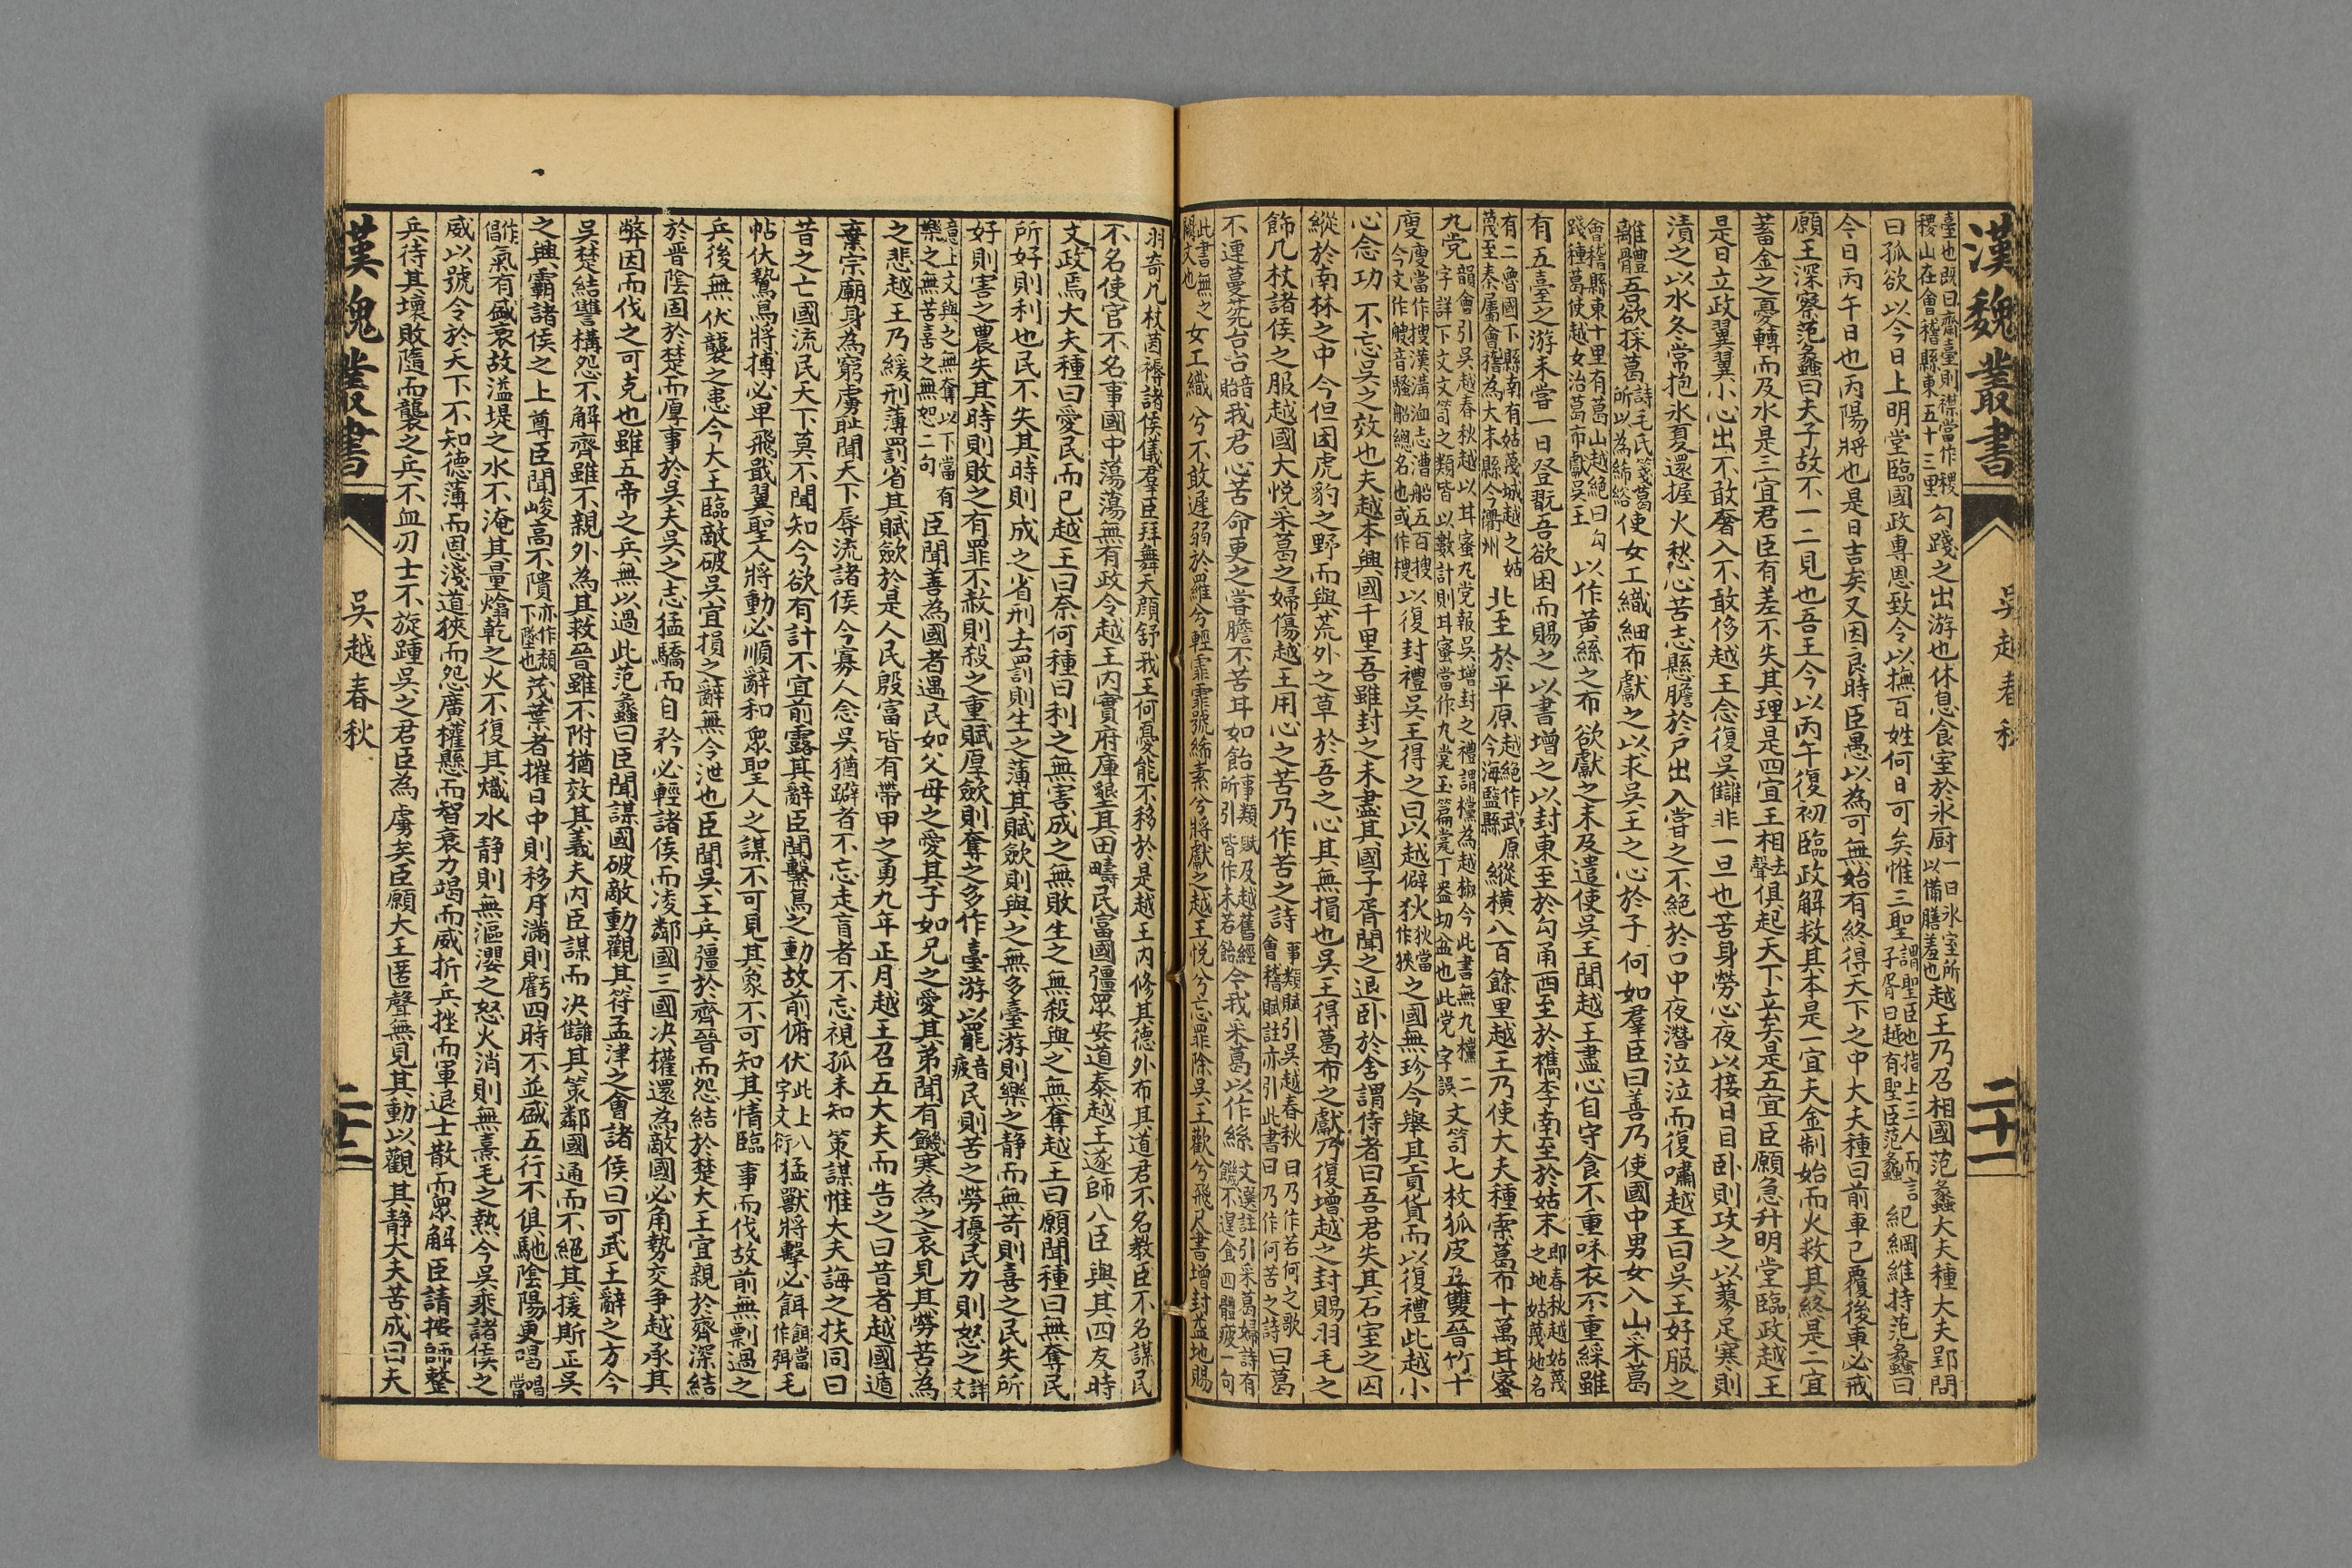 漢魏叢書 吳越春秋 二十一
臺也既曰齋臺則襟當作稷稷山在會稽縣東五十三里勾踐之出游也休息食室於氷厨一曰氷室所以備膳羞也越王乃召相國范蠡大夫種大夫郢問
曰孤欲以今日上明堂臨國政專恩致令以撫百姓何日可矣惟三聖謂聖臣也指上三人而言子胥曰越有聖臣范蠡紀綱維持范蠡曰
今日丙午日也丙陽將也是日吉矣又因良時臣愚以為可無始有終得天下之中大夫種曰前車已覆後車必戒
願王深察范蠡曰夫子故不一二見也吾王今以丙午復初臨政解救其本是一宜夫金制始而火救其終是二宜
蓄金之憂轉而及水是三宜君臣有差不失其理是四宜王相去聲俱起天下立矣是五宜臣願急升明堂臨政越王
是日立政翼翼小心出不敢奢入不敢侈越王念復吳讎非一旦也苦身勞心夜以接日目卧則攻之以蓼足寒則
漬之以水冬常抱氷夏還握火愁心苦志懸膽於戸出入嘗之不絕於口中夜潛泣泣而復嘯越王曰吳王好服之
離體吾欲採葛詩毛氏箋葛所以為絺綌使女工織細布獻之以求吳王之心於子何如羣臣曰善乃使國中男女入山采葛
會稽縣東十里有葛山越絕曰勾踐種葛使越女治葛布獻吳王以作黃絲之布欲獻之未及遣使吳王聞越王盡心自守食不重味衣不重綵雖
有五臺之游未嘗一日登翫吾欲因而賜之以書增之以封東至於勾甬西至於檇李南至於姑末即春秋越姑蔑之地姑蔑地名
有二魯國卞縣南有姑蔑城越之姑蔑至秦屬會稽為大末縣今衢州北至於平原越絕作武原今海鹽縣縱橫八百餘里越王乃使大夫種索葛布十萬甘蜜
九党韻會引吳越春秋越以甘蜜九党報吳增封之禮謂欓為越椒今此書無九欓二字詳下文文笥之類皆以數計則甘蜜當作九党玉篇党丁盎切盆也此党字誤文笥七枚狐皮五雙晉竹十
廋廋當作搜漢溝洫志漕船五百搜今文作艘音騷船總名也或作搜以復封禮吳王得之曰以越僻狄狄當作狹之國無珍今舉其貢貨而以復禮此越小
心念功不忘吳之效也夫越本興國千里吾雖封之未盡其國子胥聞之退卧於舍謂侍者曰吾君失其石室之囚
縱於南林之中今但因虎豹之野而與荒外之草於吾之心其無損也吳王得葛布之獻乃復增越之封賜羽毛之
飾几杖諸侯之服越國大悅采葛之婦傷越王用心之苦乃作苦之詩事類賦引吳越春秋曰乃作若何之歌會稽賦註亦引此書曰乃作何苦之詩曰葛
不連蔓棻台台音貽我君心苦命更之嘗膽不苦甘如飴事類賦及越舊經所引皆作未若飴令我采葛以作絲文選註引采葛婦詩有饑不遑食四體疲一句
此書無之闕文也女工織兮不敢遲弱於羅兮輕霏霏號絺素兮將獻之越王悅兮忘罪除吳王歡兮飛尺書增封益地賜
羽奇几杖茵褥諸侯儀羣臣拜舞天顏舒我王何憂能不移於是越王內修其德外布其道君不名教臣不名謀民
不名使官不名事國中蕩蕩無有政令越王內實府庫墾其田疇民富國彊眾安道泰越王遂師八臣與其四友時
文政焉大夫種曰愛民而已越王曰奈何種曰利之無害成之無敗生之無殺與之無奪越王曰願聞種曰無奪民
所好則利也民不失其時則成之省刑去罰則生之薄其賦歛則與之無多臺游則樂之静而無苛則喜之民失所
好則害之農失其時則敗之有罪不赦則殺之重賦厚歛則奪之多作臺游以罷音疲民則苦之勞擾民力則怒之詳文
意上文與之無奪以下當有樂之無苦喜之無怒二句臣聞善為國者遇民如父母之愛其子如兄之愛其弟聞有饑寒為之哀見其勞苦為
之悲越王乃緩刑薄罰省其賦歛於是人民殷富皆有帶甲之勇九年正月越王召五大夫而告之曰昔者越國遁
棄宗廟身為窮虜恥聞天下辱流諸侯今寡人念吳猶躃者不忘走盲者不忘視孤未知策謀惟大夫誨之扶同曰
昔之亡國流民天下莫不聞知今欲有計不宜前露其辭臣聞擊鳥之動故前俯伏此上八字文衍猛獸將擊必餌餌當作弭毛
帖伏鷙鳥將搏必卑飛戢翼聖人將動必順辭和眾聖人之謀不可見其象不可知其情臨事而伐故前無剽過之
兵後無伏襲之患今大王臨敵破吳宜損之辭無令泄也臣聞吳王兵彊於齊晉而怨結於楚大王宜親於齊深結
於晉陰固於楚而厚事於吳夫吳之志猛驕而自矜必輕諸侯而凌鄰國三國決權還為敵國必角勢交争越承其
弊因而伐之可克也雖五帝之兵無以過此范蠡曰臣聞謀國破敵動觀其符孟津之會諸侯曰可武王辭之方今
吳楚結讐構怨不解齊雖不親外為其救晉雖不附猶效其義夫內臣謀而決讎其策鄰國通而不絕其援斯正吳
之興霸諸侯之上尊臣聞峻高不隤亦作頹下墜也茂葉者摧日中則移月滿則虧四時不並盛五行不俱馳陰陽更唱唱當
作倡氣有盛衰故溢堤之水不淹其量熻乾之火不復其熾水静則無漚瀴之怒火消則無熹毛之熱今吳乘諸侯之
威以號令於天下不知德薄而恩淺道狹而怨廣權懸而智衰力竭而威折兵挫而軍退士散而眾解臣請按師整
兵待其壞敗隨而襲之兵不血刃士不旋踵吳之君臣為虜矣臣願大王匿聲無見其動以觀其静大夫苦成曰夫
漢魏叢書 吳越春秋 二十二